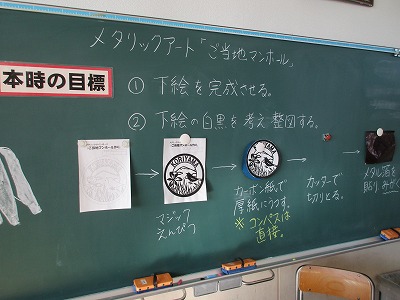 メタリックアート「ご当地マンホール」
本時の目標
① 下絵を完成させる。
② 下絵の白黒を考え整図する。
KORIYAMA
マジック
えんぴつ
カーボン紙で
厚紙にうつす。
※コンパスは
直接。
カッターで
切りとる。
メタル酒を
貼りみがく